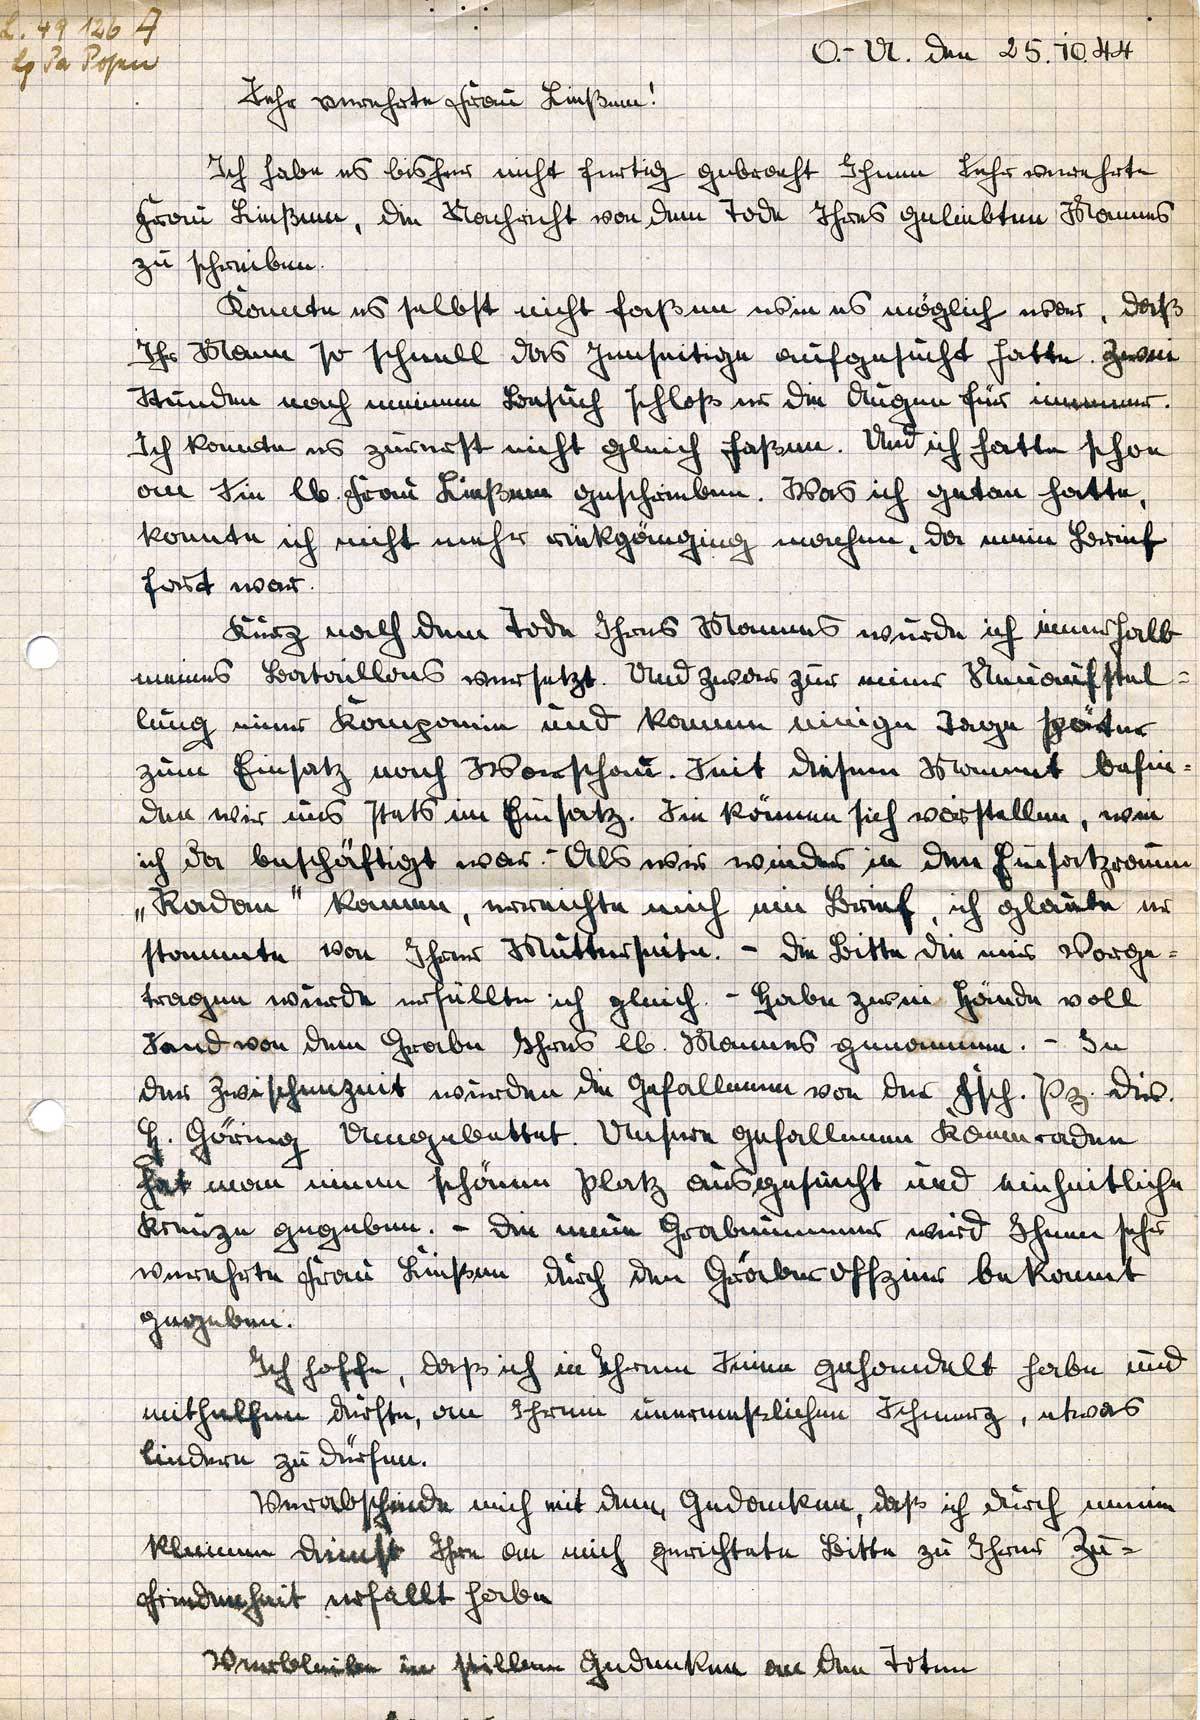 L. 49 126 A
Lg Pa Posen
O.-U. den 25.10.44
Sehr verehrte Frau Ließem!
Ich habe es bisher nicht fertig gebracht Ihnen sehr verehrte
Frau Ließem, die Nachricht von dem Tode Ihres geliebten Mannes
zu schreiben.
Konnte es selbst nicht faßen wie es möglich war, daß
Ihr Mann so schnell das Jenseitige aufgesucht hatte. Zwei
Stunden nach meinem Besuch schloß er die Augen für immer.
Ich konnte es zuerst nicht gleich faßen. Und ich hatte schon
an Sie lb. Frau Ließem geschrieben. Was ich getan hatte,
konnte ich nicht mehr rükgänging machen, da mein Berief
fort war.
Kurz nach dem Tode Ihres Mannes wurde ich innerhalb
meines Bataillons versetzt. Und zwar zur einer Neuaufstel=
lung einer Kompanie und kamen einige Tage später
zum Einsatz nach Warschau. Seit diesem Moment befin=
den wir uns stets im Einsatz. Sie können sich vorstellen, wie
ich da beschäftigt war. - Als wir wieder in den Einsatzraum
„Radom" kamen, erreichte mich ein Brief, ich glaube er
stammte von Ihrer Mutterseite. - Die Bitte die mir vorge=
tragen wurde erfüllte ich gleich. - Habe zwei Hände voll
Sand von dem Grabe Ihres lb. Mannes genommen. - In
der Zwischenzeit wurden die Gefallenen von der Fsch. Pz. Div.
H. Göring Umgebettet. Unsere gefallenen Kameraden
hat man einen schönen Platz ausgesucht und einheitliche
Kreuze gegeben. - Die neue Grabnummer wird Ihnen sehr
verehrte Frau Ließem durch den Gräberoffzier bekannt
gegeben.
Ich hoffe, daß ich in Ihrem Sinne gehandelt habe und
mithelfen durfte, an Ihrem unermeßlichen Schmerz, etwas
lindern zu dürfen.
Verabschiede mich mit dem Gedanken, daß ich durch meinen
kleinen Dienst Ihre an mich gerichtete Bitte zu Ihrer Zu=
friedenheit erfüllt habe
Verbleibe in stillem Gedenken an den Toten